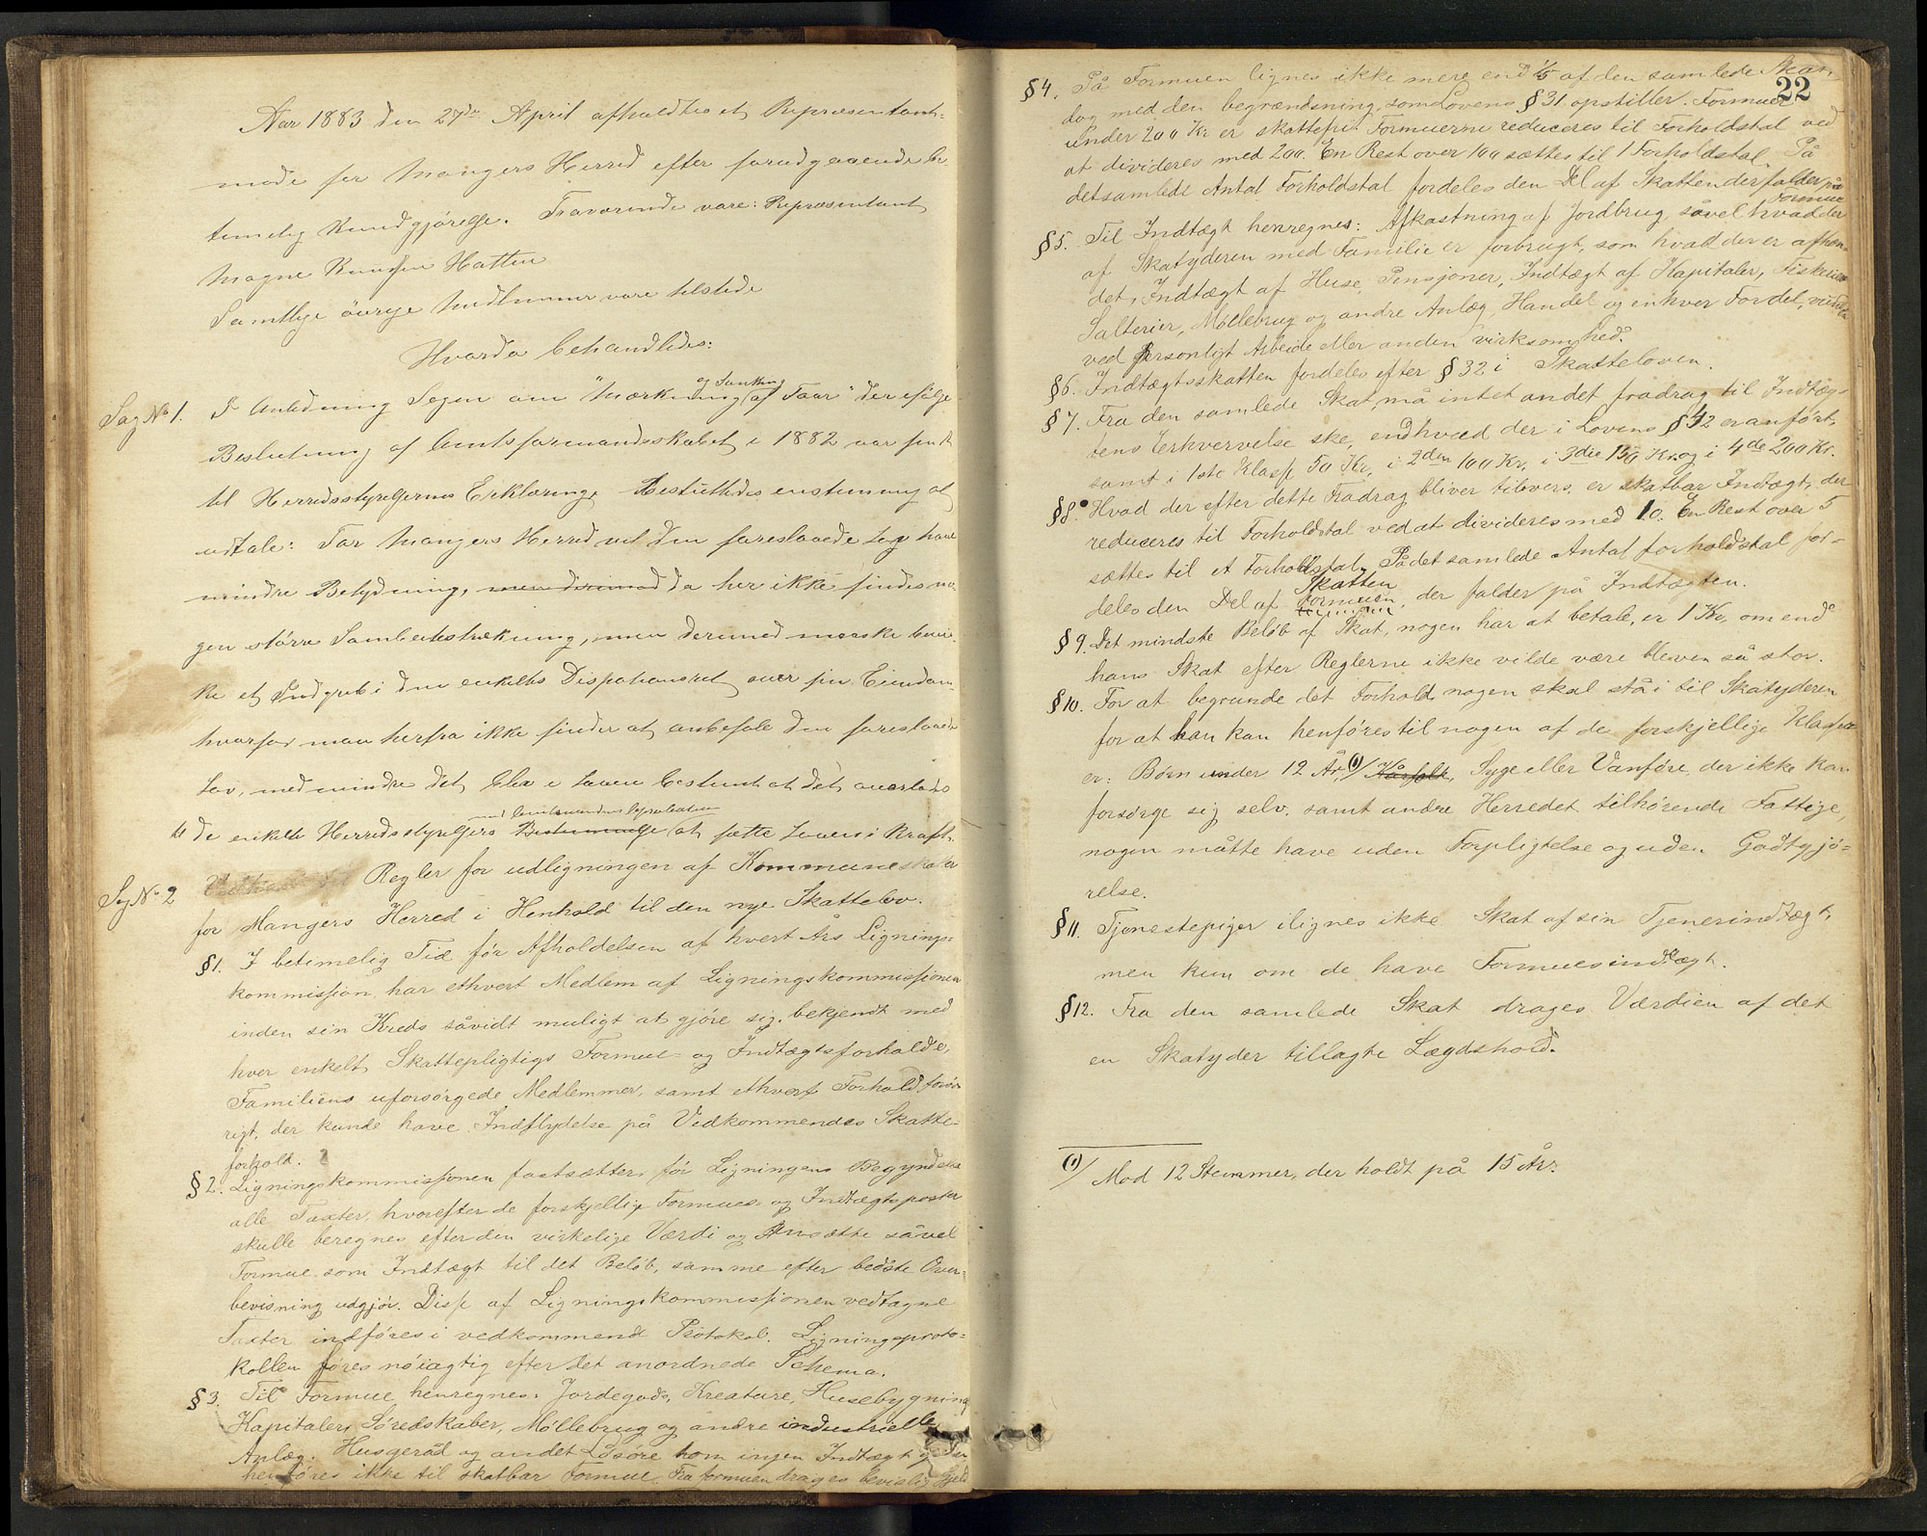 Aar 1883 den 27de April afholdtes et Repræsentant-
møde for Mangers Herred efter forudgaaende be-
timelig Kundgjørelse. Fraværende vare: Repræsentant
Magne Knudsen Hatten
Samtlige øvrige Medlemmer vare tilstede
Hvorda behandledes:
Sag No 1. I Anledning Sagen om "Mærkning og Sanking af Faar" der ifølge
Beslutning af Amtsformandskabet i 1882 var sendt
til Herredsstyrelsernes Erklæring, besluttedes enstemmig at
udtale: For Mangers Herred vil den foreslaaede Lov have
mindre Betydning, men derimod da her ikke findes no-
gen større Sambeitestrækning, men derimod maaske kun-
ke et Indgreb i den enkeltes Dispotionsret over sin Eiendom
hvorfor man herfra ikke finder at anbefale den foreslaaede
Lov, medmindre det blev i Loven bestemt at det overlodes
med Amtmandens Approbation
til de enkelte Herredsstyrelsers Bestemmelse at sætte Loven i Kraft.
Sag No 2 Regler for udligningen af Kommuneskatter
for Mangers Herred i Henhold til den nye Skattelov.
§1. I betimelig Tid før Afholdelsen af hvert Års Lignings-
kommission har ethvert Medlem af Ligningskommissionen
inden sin Kreds såvidt muligt at gjøre sig bekjendt med
hver enkelt Skattepligtigs Formue- og Indtægtsforholde,
Familiens uforsørgede Medlemmer, samt ethvert Forhold forøv-
rigt, der kunde have Indflydelse på Vedkommendes Skatte-
forhold.
§2. Ligningskommissionen fastsætter før Ligningens Begyndelse
alle Taxter, hvorefter de forskjellige Formues- og Indtægtsposter
skulle beregnes efter den virkelige Værdi og Ansætte såvel
Formue som Indtægt til det Beløb, samme efter bedste Over-
bevisning udgjør. Disse af Ligningskommissionen vedtagne
Taxter indføres i vedkommend Protokol. Ligningsproto-
kollen føres nøiagtig efter det anordnede Schema.
§3. Til Formue henregnes: Jordegods, Kreature, Husebygning
Kapitaler, Søredskaber, Møllebrug og andre industrielle
Anlæg. Husgeråd og andet Løsøre som ingen Indtægt
henføres ikke til skatbar Formue. Fra formuen drages bevislig Gjeld
22
§4. På Formuen lignes ikke mere end 1/5 af den samlede Skat,
dog med den begrændsning, som Lovens §31 opstiller. Formuer
under 200 Kr er skattefrit. Formuerne reduceres til Forholdstal ved
at divideres med 200. En Rest over 100 sættes til 1 Forholdstal. På
det samlede Antal Forholdstal fordeles den Del af Skatten der falder på
Formue
§5. Til Indtægt henregnes: Afkastning af Jordbrug såvel hvad der
af Skatyderen med Familie er forbrugt, som hvad der er afhæn-
det, Indtægt af Huse, Pensjoner, Indtægt af Kapitaler, Fiskerier
Salterier, Møllebrug og andre Anlæg, Handel og enhver Fordel, vunden
ved personligt Arbeide eller anden virksomhed.
§6. Indtægtsskatten fordeles efter §32 i Skatteloven.
§7. Fra den samlede Skat må intet andet fradrag til Indtæg-
tens Erhvervelse ske, end hvad der i Lovens §42 er anført,
samt i 1ste Klasse 50 Kr, i 2den 100 Kr, i 3die 150 Kr og i 4de 200 Kr.
§8. Hvad der efter dette Fradrag bliver tilovers, er skatbar Indtægt, der
reduceres til Forholdstal ved at divideres med 10. En Rest over 5
sættes til et Forholdstal. På det samlede Antal forholdstal for-
Skatten
deles den Del af Formuen, der falder på Indtægten.
§9. Det mindste Beløb af Skat, nogen har at betale, er 1 Kr, om end
hans Skat efter Reglerne ikke vilde være bleven så stor.
§10. For at begrunde det Forhold nogen skal stå i til Skatyderen
for at han kan henføres til nogen af de forskjellige Klasser
er: Børn under 12 År, 1)/ Kårfolk, Syge eller Vanføre, der ikke kan
forsørge sig selv, samt andre Herredet tilhørende Fattige,
nogen måtte have uden Forpligtelse og uden Godtgjø-
relse.
§11. Tjenestepiger ilignes ikke Skat af sin Tjenerindtægt,
men kun om de have Formuesindtægt.
§12. Fra den samlede Skat drages Værdien af det
en Skatyder tillagte Lægdshold.
1)/ Mod 12 Stemmer, der holdt på 15 År.